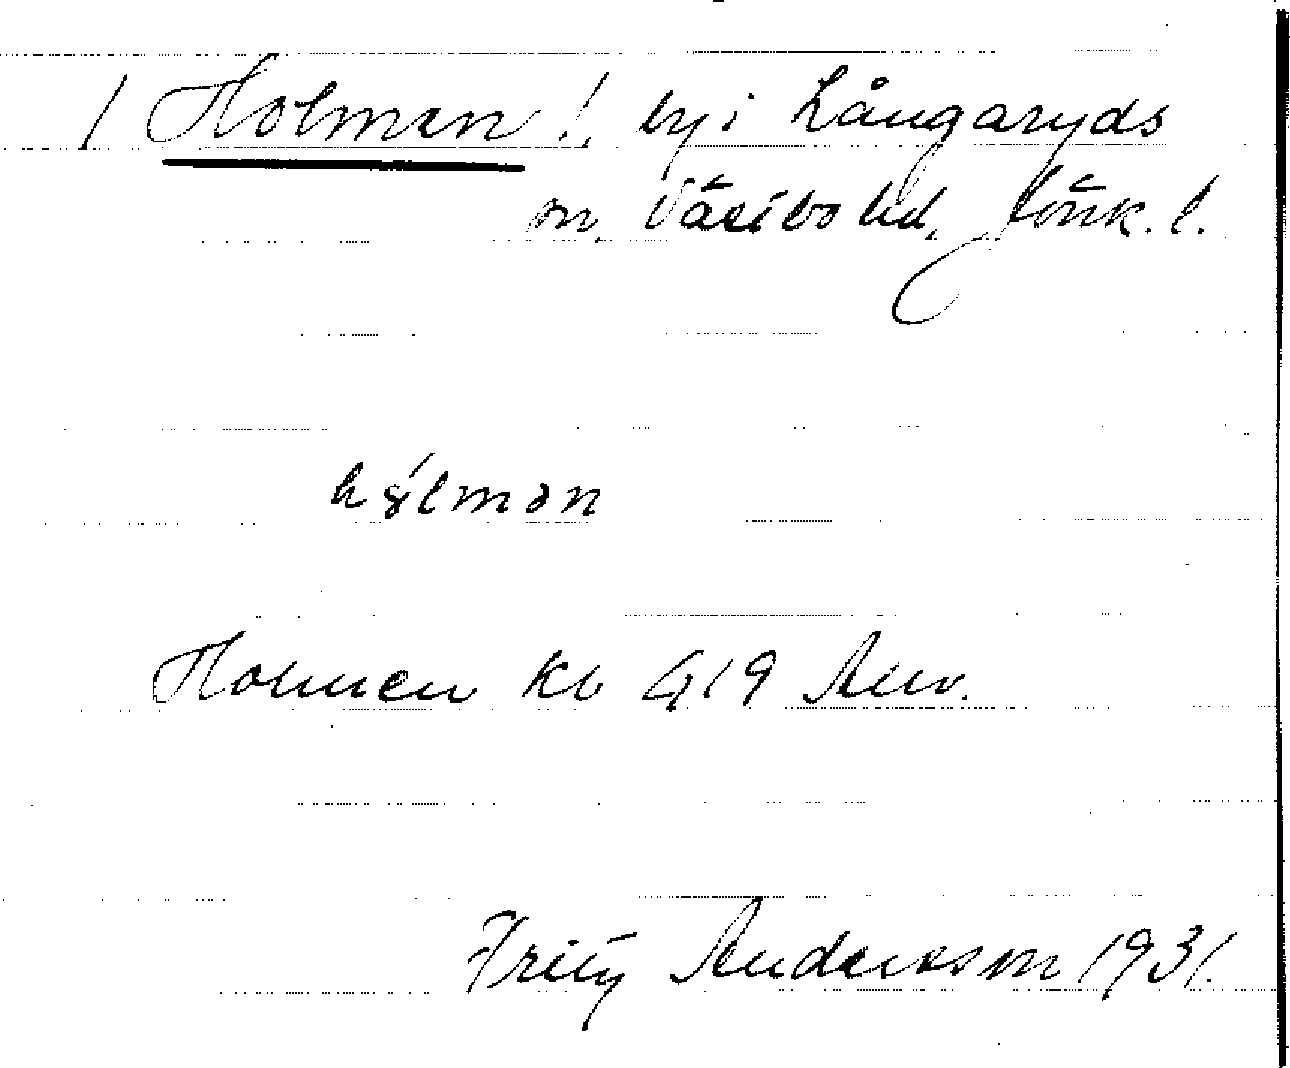 / Holmen /, by i Långaryds
sn, Västbo hd, Jönk. l.
Holmen kb 419 Anv.
Fritz Andersson 1931.